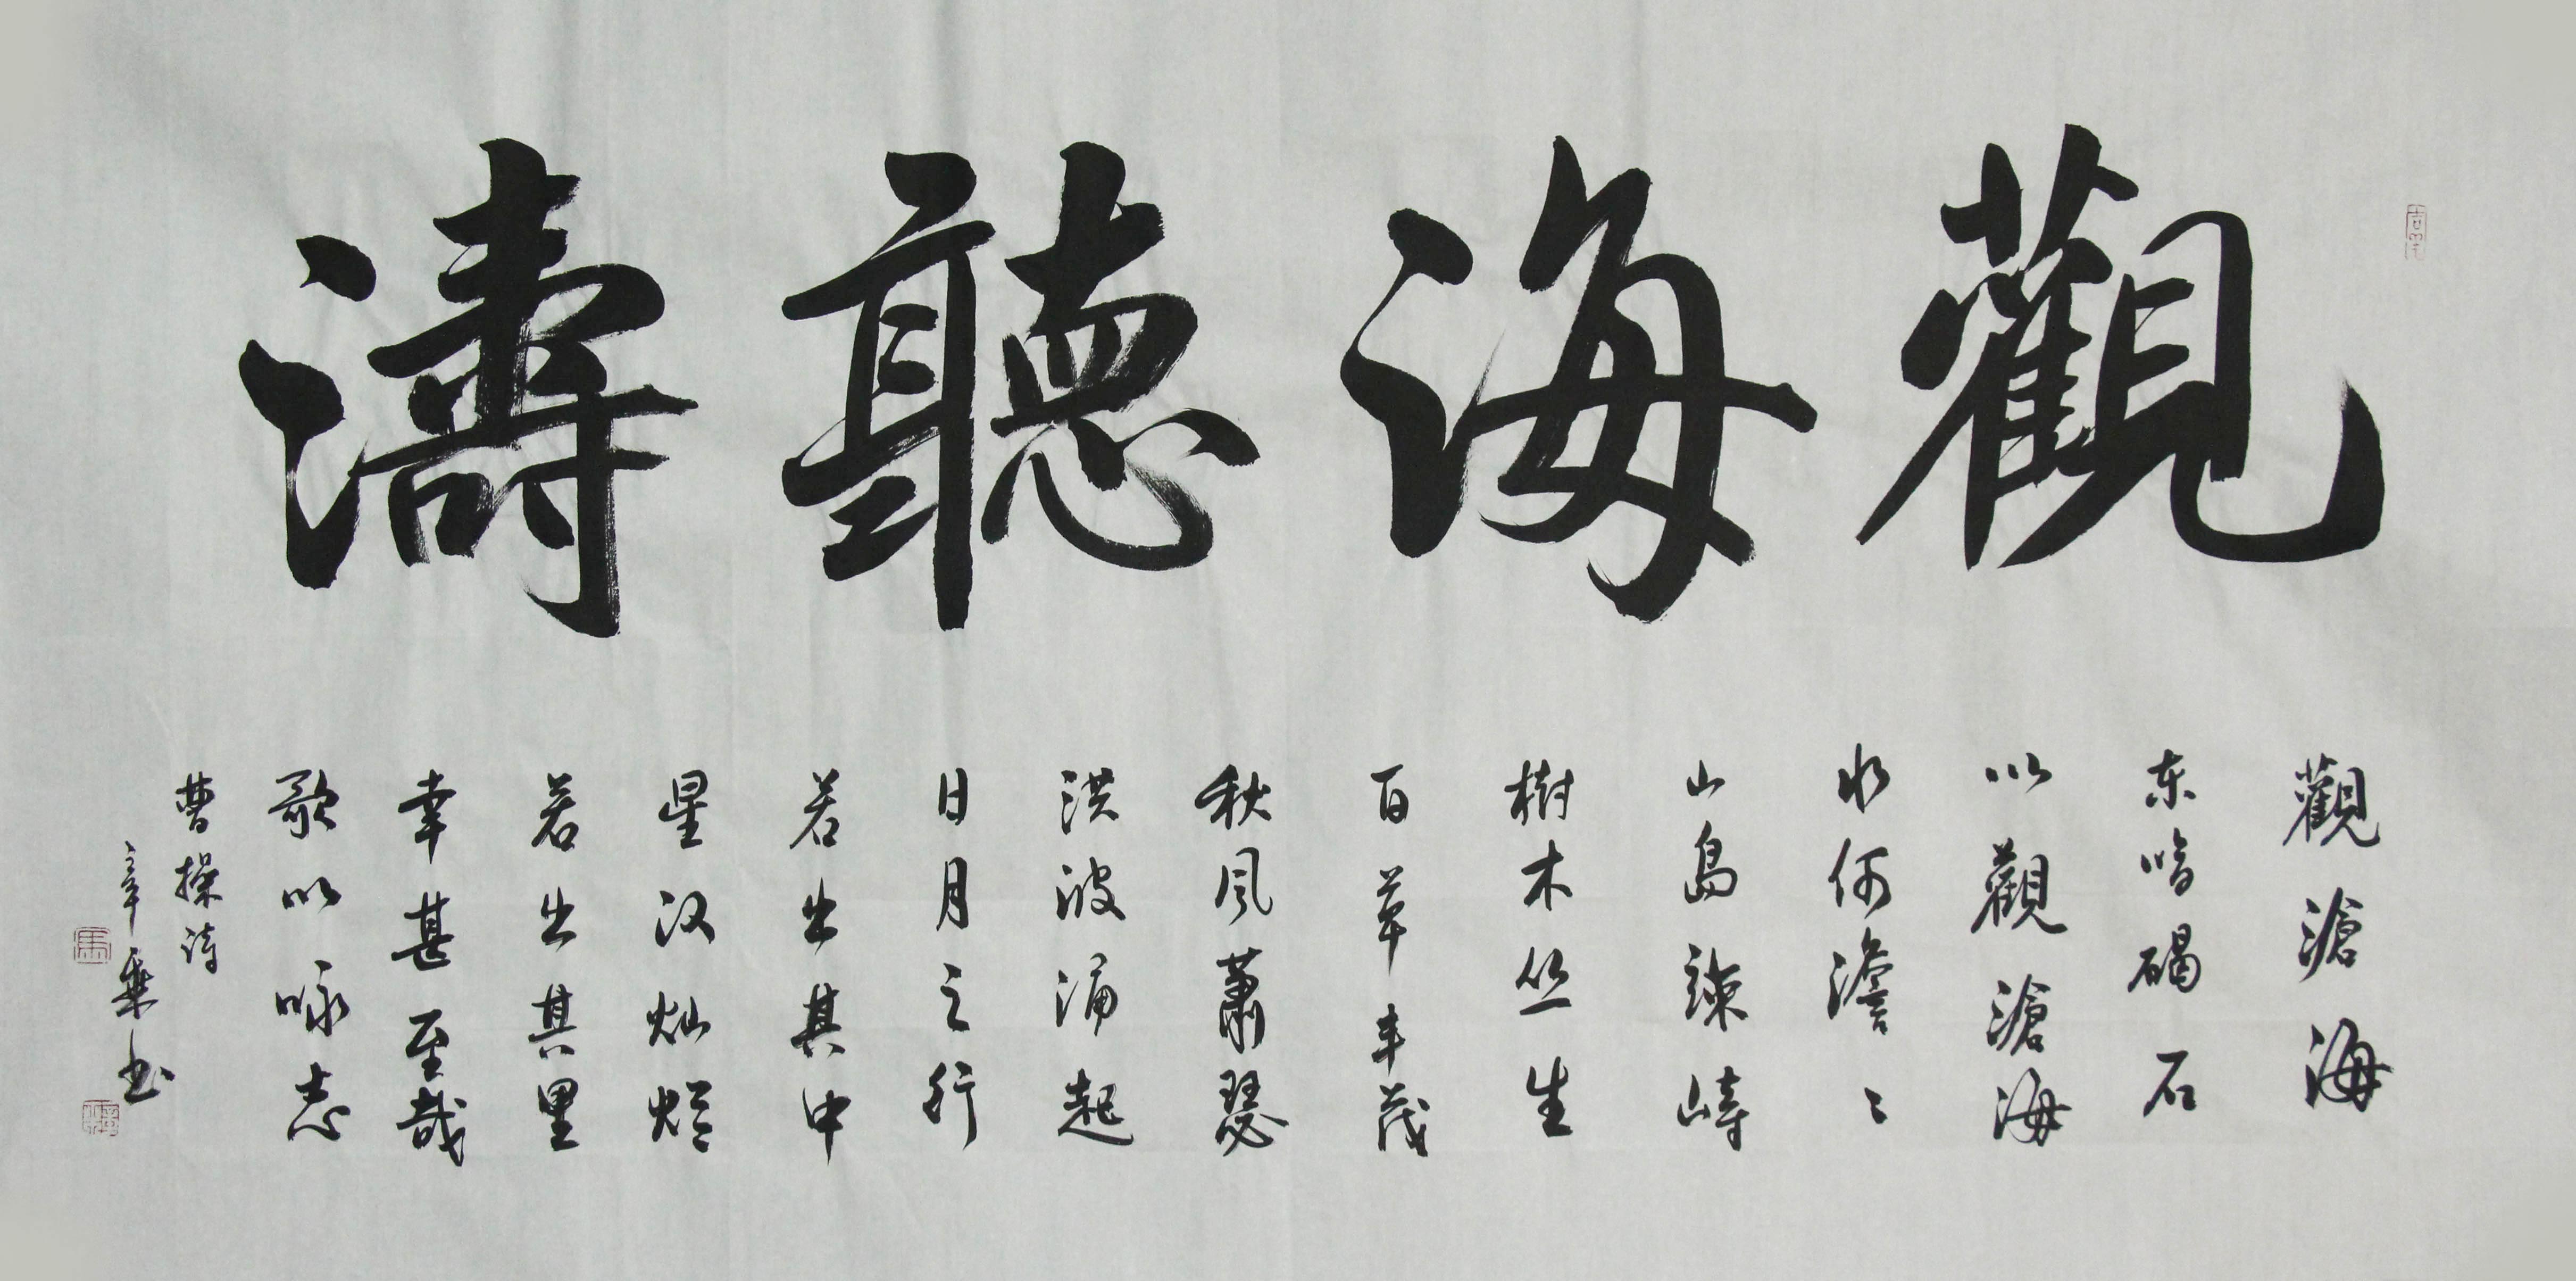 觀海聽濤
觀滄海
东临碣石
以觀滄海
水何澹〻
山島竦峙
樹木丛生
百草丰茂
秋風蕭瑟
洪波涌起
日月之行
若出其中
星汉灿烂
若出其里
幸甚至哉
歌以咏志
曹操诗
辛乘书